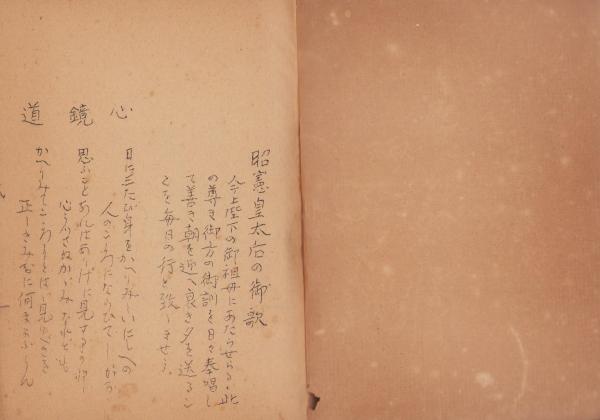 昭憲皇太后の御歌
今上陛下の御祖母にあたらせらる此
の尊き御方の御訓を日々奉唱し
て善き朝を迎へ良き夕を送るこ
とを毎日の行と致しませう
心 日に三たび身をかへりみしいにしへの
人のこゝろにならひてしがな
鏡 思ふことあればあり
心うつさぬかゞみなれども
道 かへりみてこゝろにとはゞ見ゆべきを
正しきみちに何まよふらん